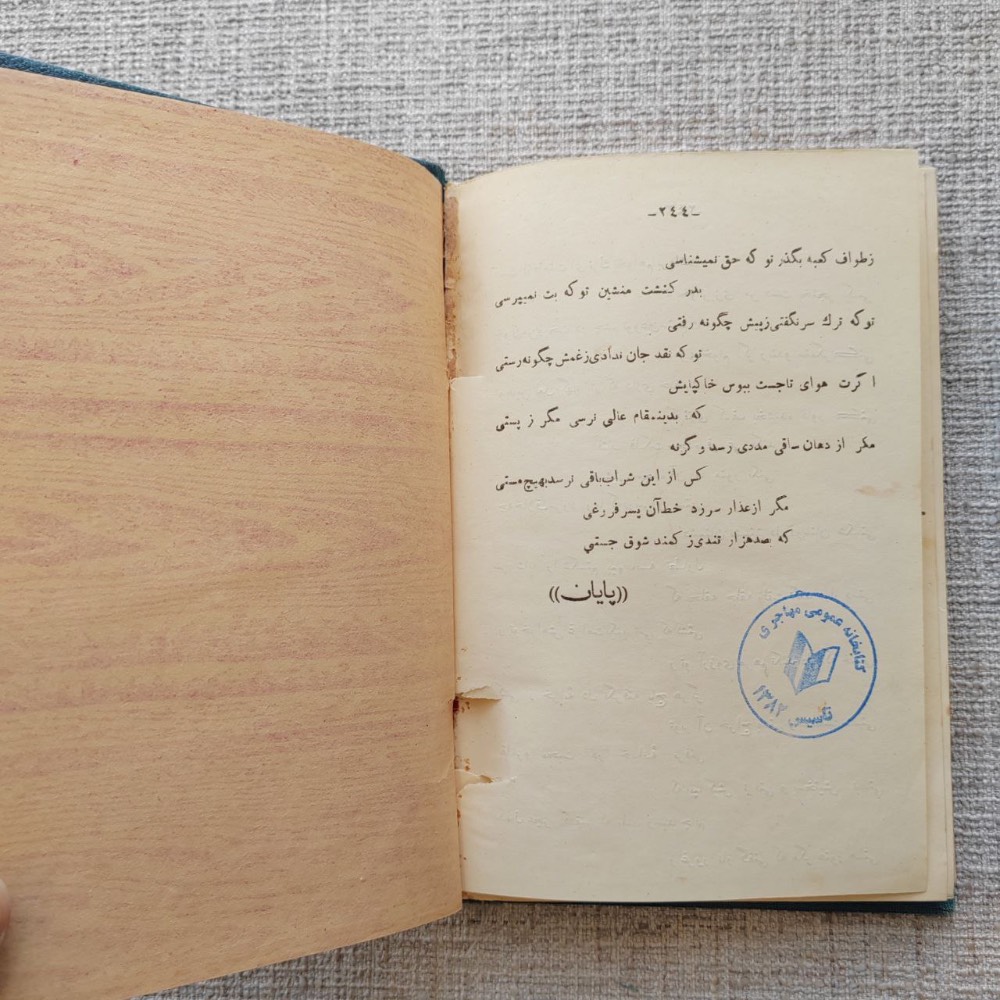 -٢٤٤-
زطواف کعبه بگذر تو که حق نمیشناسی
بدر کنشت منشین توکه بت نمیپرسی
توکه ترك سرنگفتی زپیش چگونه رفتی
تو که نقد جان ندادی زغمش چگونه رستی
اگرت هوای تاجست ببوس خاکپایش
که بدینمقام عالی نرسی مگر ز پستی
مگر از دهان ساقی مددی رسد و گرنه
کس از این شراب باقی نرسد بهیچ مستی
مگر از عذار سرزد خط آن پسر فروغی
که صدهزار تندی ز کمند شوق جستی
((پایان))
کتابخانه عمومی مهاجری
تاسیس ۱۳۸۲